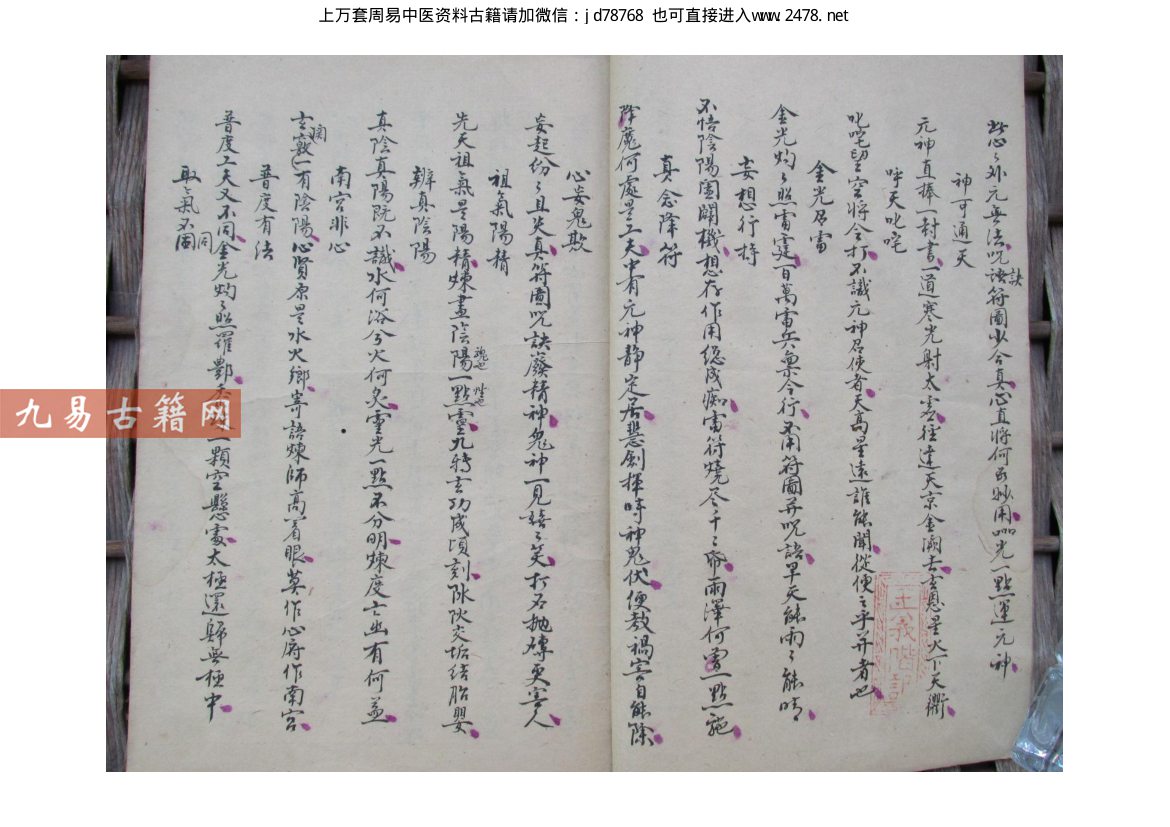 上万套周易中医资料古籍请加微信：jd78768 也可直接进入www.2478.net
外元無法咒語訣符圖必合真心直將何為妙用光一點運元神
神可通天
元神直捧一封書一道寒光射太虛徑達天京金闕去玄恩星火下天衢
呼天叱咤
叱咤望空將令打不識元神召使者天高星遠誰能聞從便之乎并者也
金光召雷
金光灼々照雷霆百萬雷兵稟令行不用符圖并咒語旱天能雨々能晴
妄想行持
不悟陰陽闔闢機想存作用總成痴雷符燒尽千々帋雨澤何曾一點施
真念降符
降魔何處是工夫中有元神静定居慧劍揮時神鬼伏便教禍害自能除
心妄鬼欺
妄起份々且失真符圖咒訣廢精神鬼神一見嘻々笑打石抛磚更害人
祖氣陽精
先天祖氣是陽精煉盡陰陽一點靈九轉玄功成頃刻交垢结胎嬰
魂也 性也
辨真陰陽
真陰真陽既不識水何浴兮火何炙靈光一點不分明煉度亡幽有何益
南宮非心
玄關竅一有陰陽心腎原是水火鄉寄語煉師高着眼莫作心府作南宮
普度有法
普度工夫又不同金光灼々照羅酆一顆空懸處太極還歸無極中
取氣不同
正義階記
九易古籍网